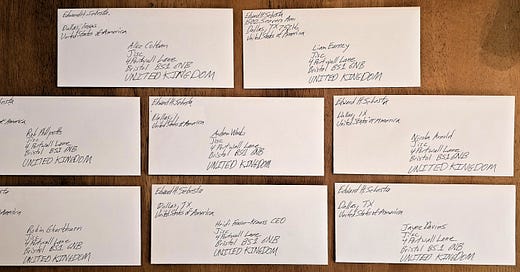 Edward H. Sebesta
Dallas, Texas
United States of America
Alice Colban
Jisc
4 Portwall Lane
Bristol BS1 6NB
UNITED KINGDOM
Edward H. Sebesta
Dallas, TX 75214
United States of America
Liam Earney
Jisc
4 Portwall Lane
Bristol BS1 6NB
UNITED KINGDOM
Sebesta
of America
Rob Philpotts
Jisc
4 Portwall Lane
Bristol BS1 6NB
UNITED KINGDOM
Edward H. Sebesta
United States of America
Andrew Weeks
Jisc
4 Portwall Lane
Bristol BS1 6NB
UNITED KINGDOM
Edward H. Sebesta
Dallas, TX
United States of America
Nicola Arnold
Jisc
4 Portwall Lane
Bristol BS1 6NB
UNITED KINGDOM
America
Robin
Jisc
4 Portwall Lane
Bristol BS1 6NB
UNITED KINGDOM
Edward H. Sebesta
Dallas, TX
United States of America
Heidi Fraser-Krauss CEO
Jisc
4 Portwall Lane
Bristol BS1 6NB
UNITED KINGDOM
Edward H. Sebesta
Dallas, TX
United States of America
Jayne Davies
Jisc
4 Portwall Lane
Bristol BS1 6NB
UNITED KINGDOM